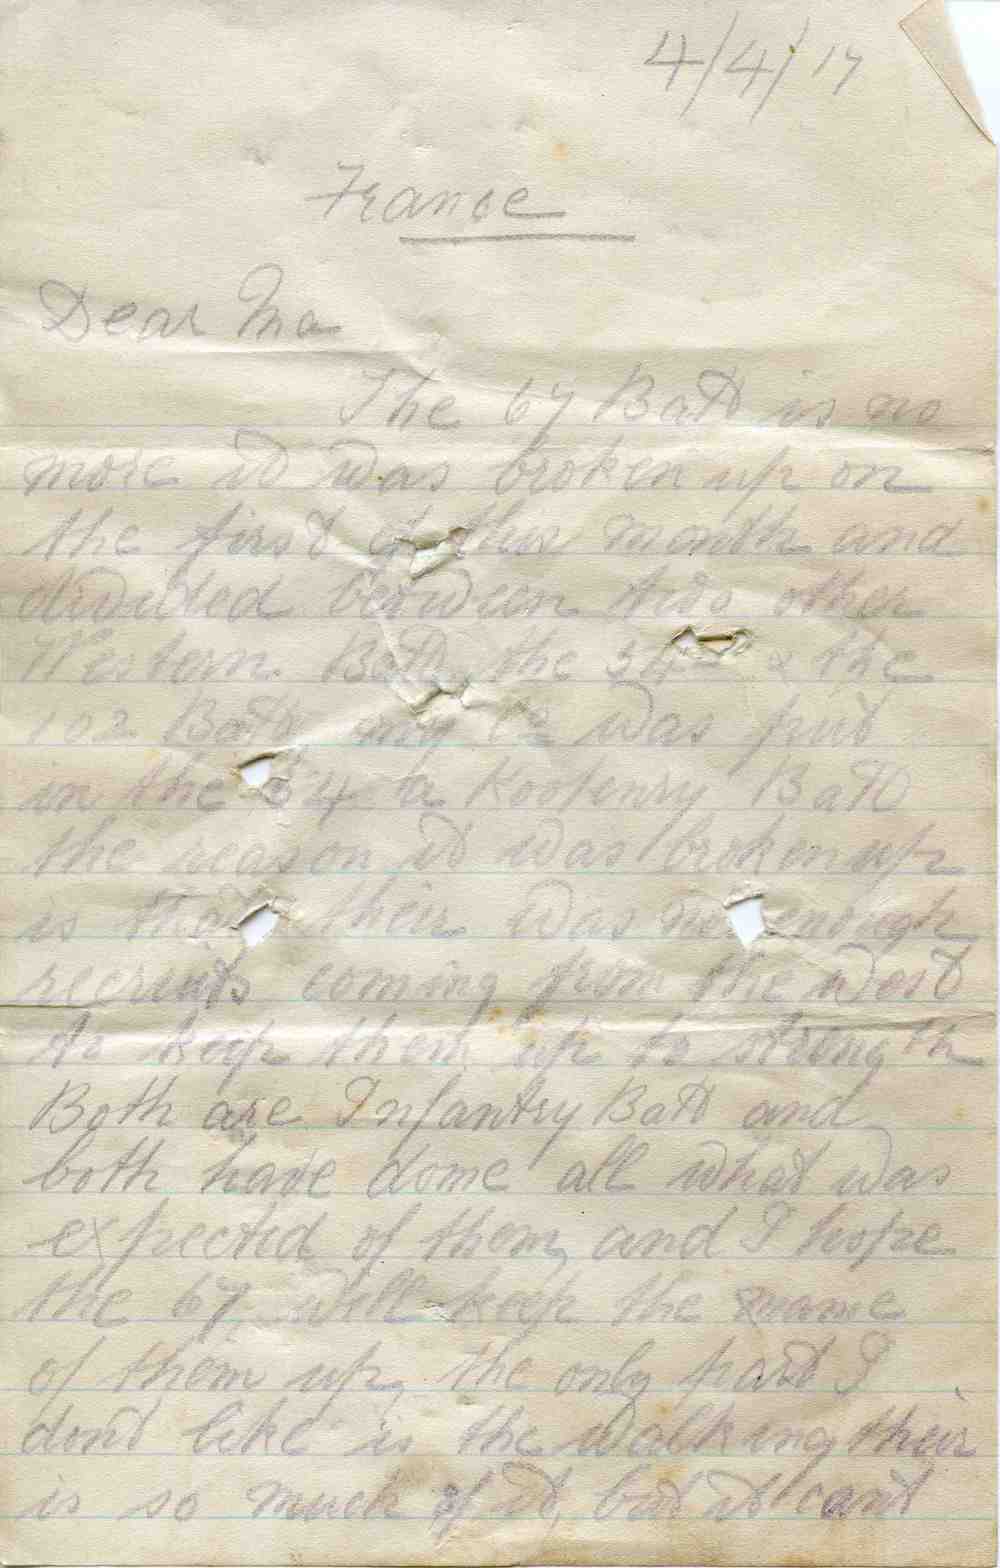 4/4/17
France
Dear Ma
The 67 Batt is no
more it was broken up on
the first of this month and
divided between two other
Western Batt the 54 & the
102 Batt my was put
in the 54 a Kootenry Batt
the reason it was broken up
is that their was not enough
recruits coming from the West
to keep them up to strength
Both are Infantry Batt and
both have dome all what was
expected of them, and I hope
the 67 will keep the name
of them up, the only part I
dont like is the walking their
is so much of it, but it cant